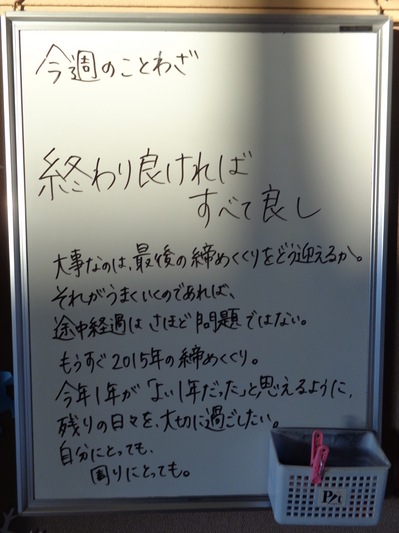 今週のことわざ
終わり良ければ
すべて良し
大事なのは、最後の締めくくりをどう迎えるか。
それがうまくいくのであれば、
途中経過はさほど問題ではない。
もうすぐ2015年の締めくくり。
今年1年が「よい1年だった」と思えるように、
残りの日々を、大切に過ごしたい。
自分にとっても、
周りにとっても。